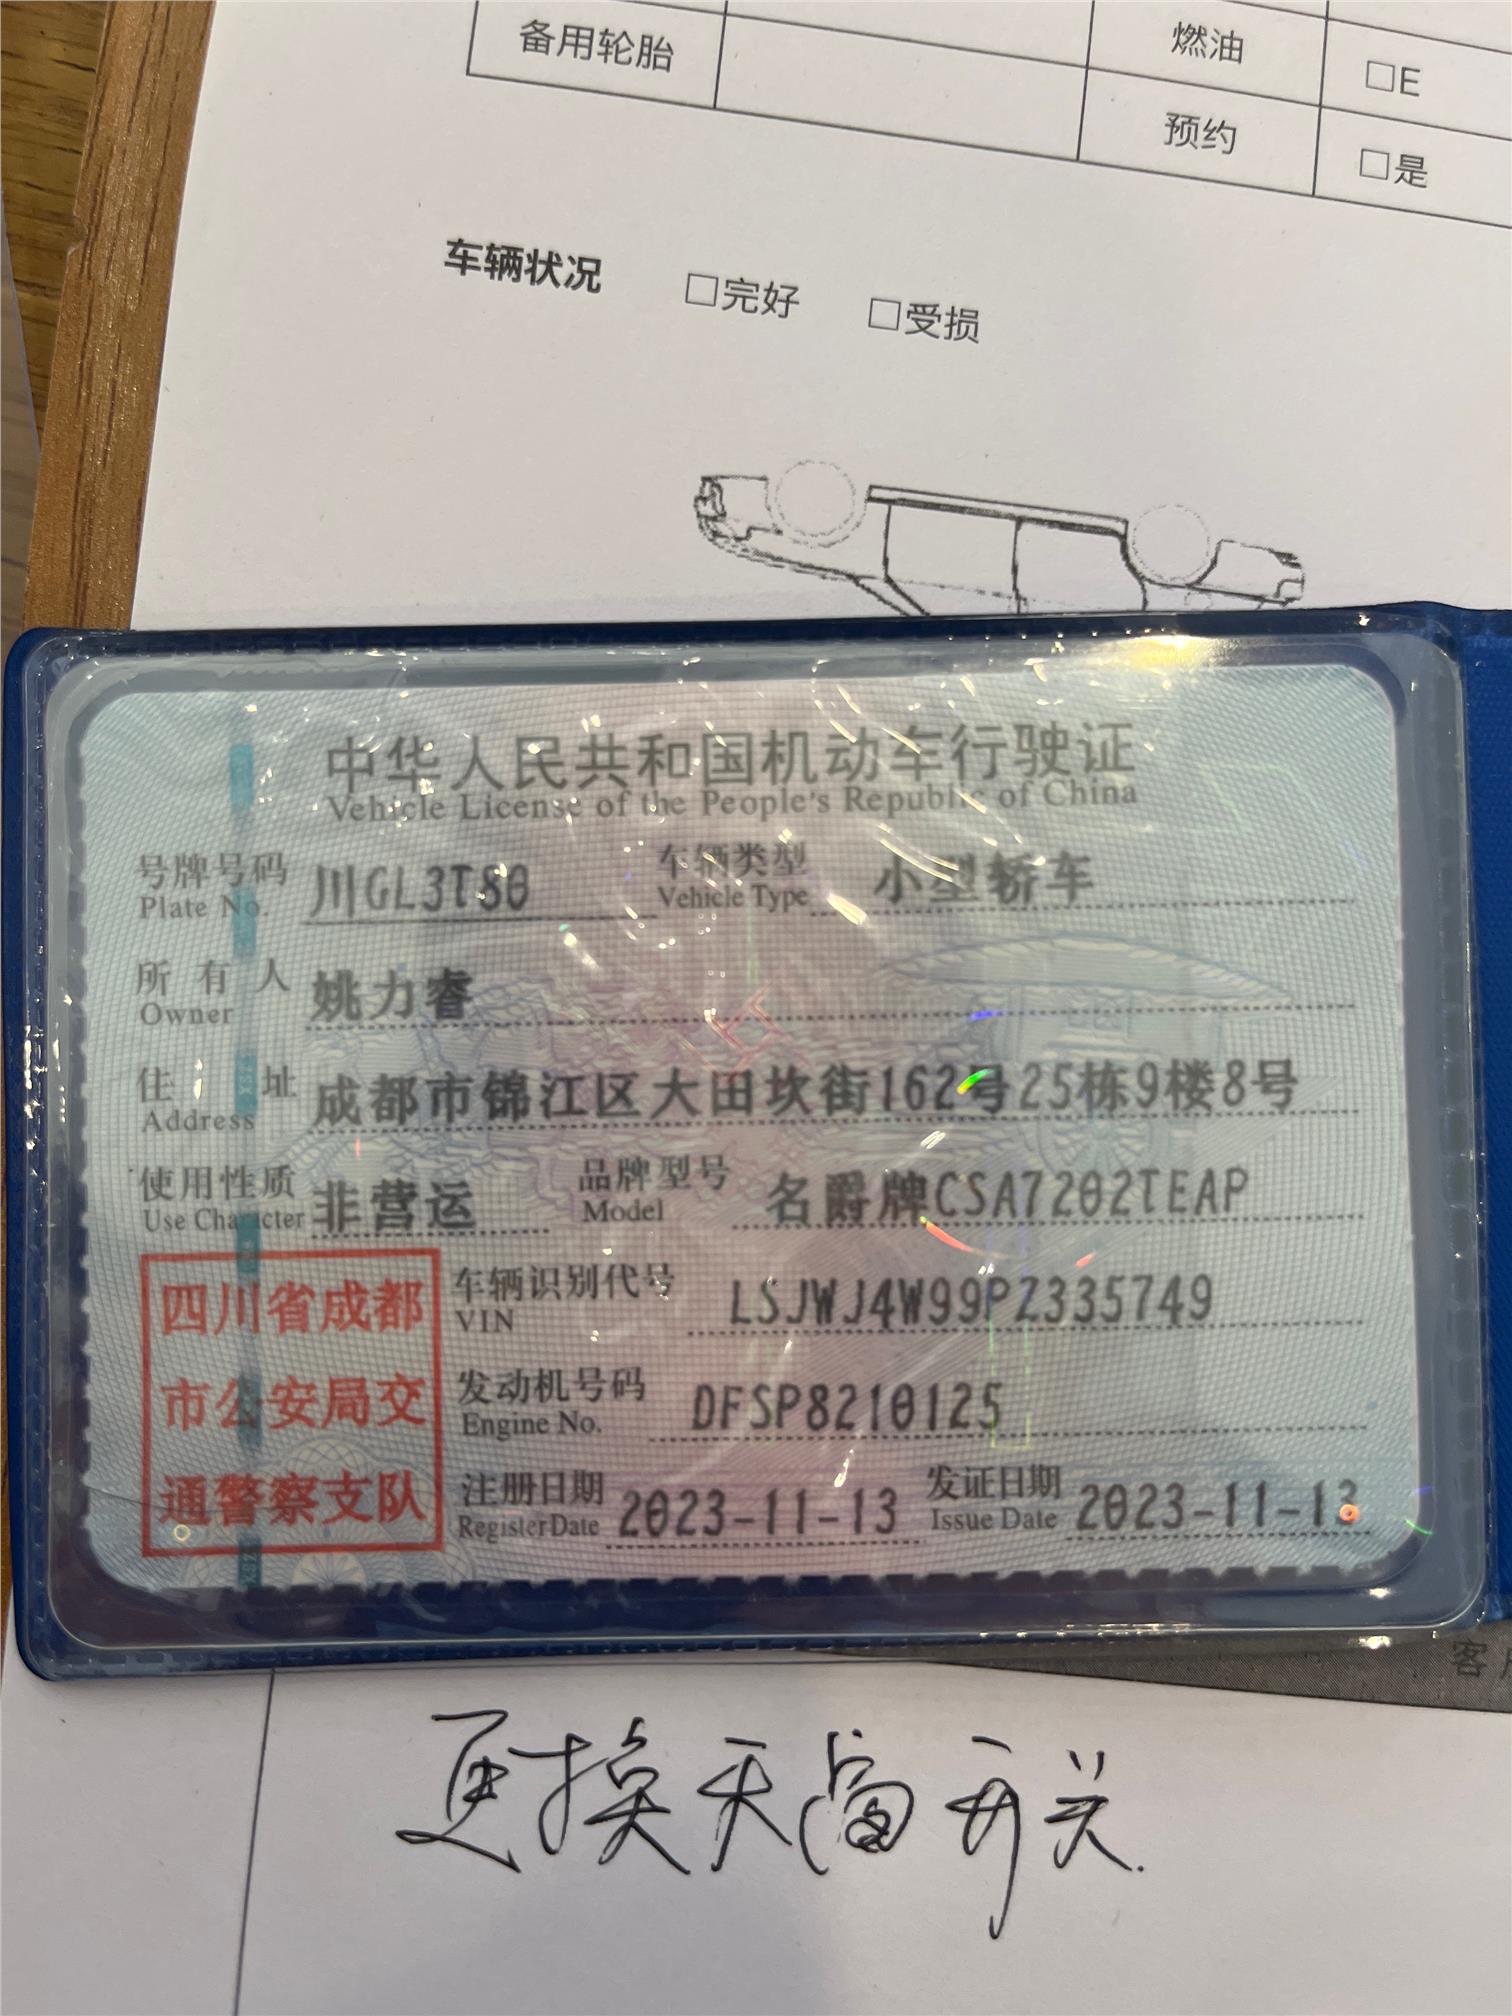 备用轮胎 燃油 □E
预约 □是
车辆状况 □完好 □受损
中华人民共和国机动车行驶证
Vehicle License of the People's Republic of China
号牌号码 川GL3T80 车辆类型 小型轿车
Plate No. Vehicle Type
所有人 姚力睿
Owner
住址 成都市锦江区大田坎街162号25栋9楼8号
Address
使用性质 非营运 品牌型号 名爵牌CSA7202TEAP
Use Character Model
四川省成都
市公安局交
通警察支队
车辆识别代号 LSJWJ4W99PZ335749
VIN
发动机号码 DFSP8210125
Engine No.
注册日期 2023-11-13 发证日期 2023-11-13
Register Date Issue Date
客户
更换天窗开关.